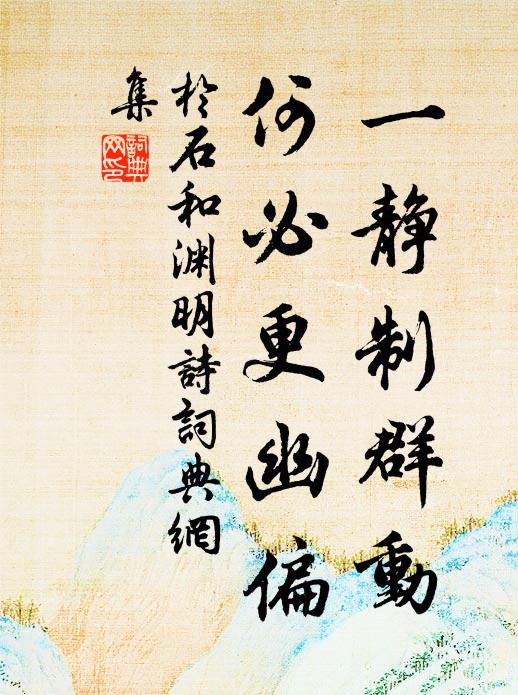 一静制群動
何必更幽偏
於石和渊明詩詞典網
集
詞典
网印